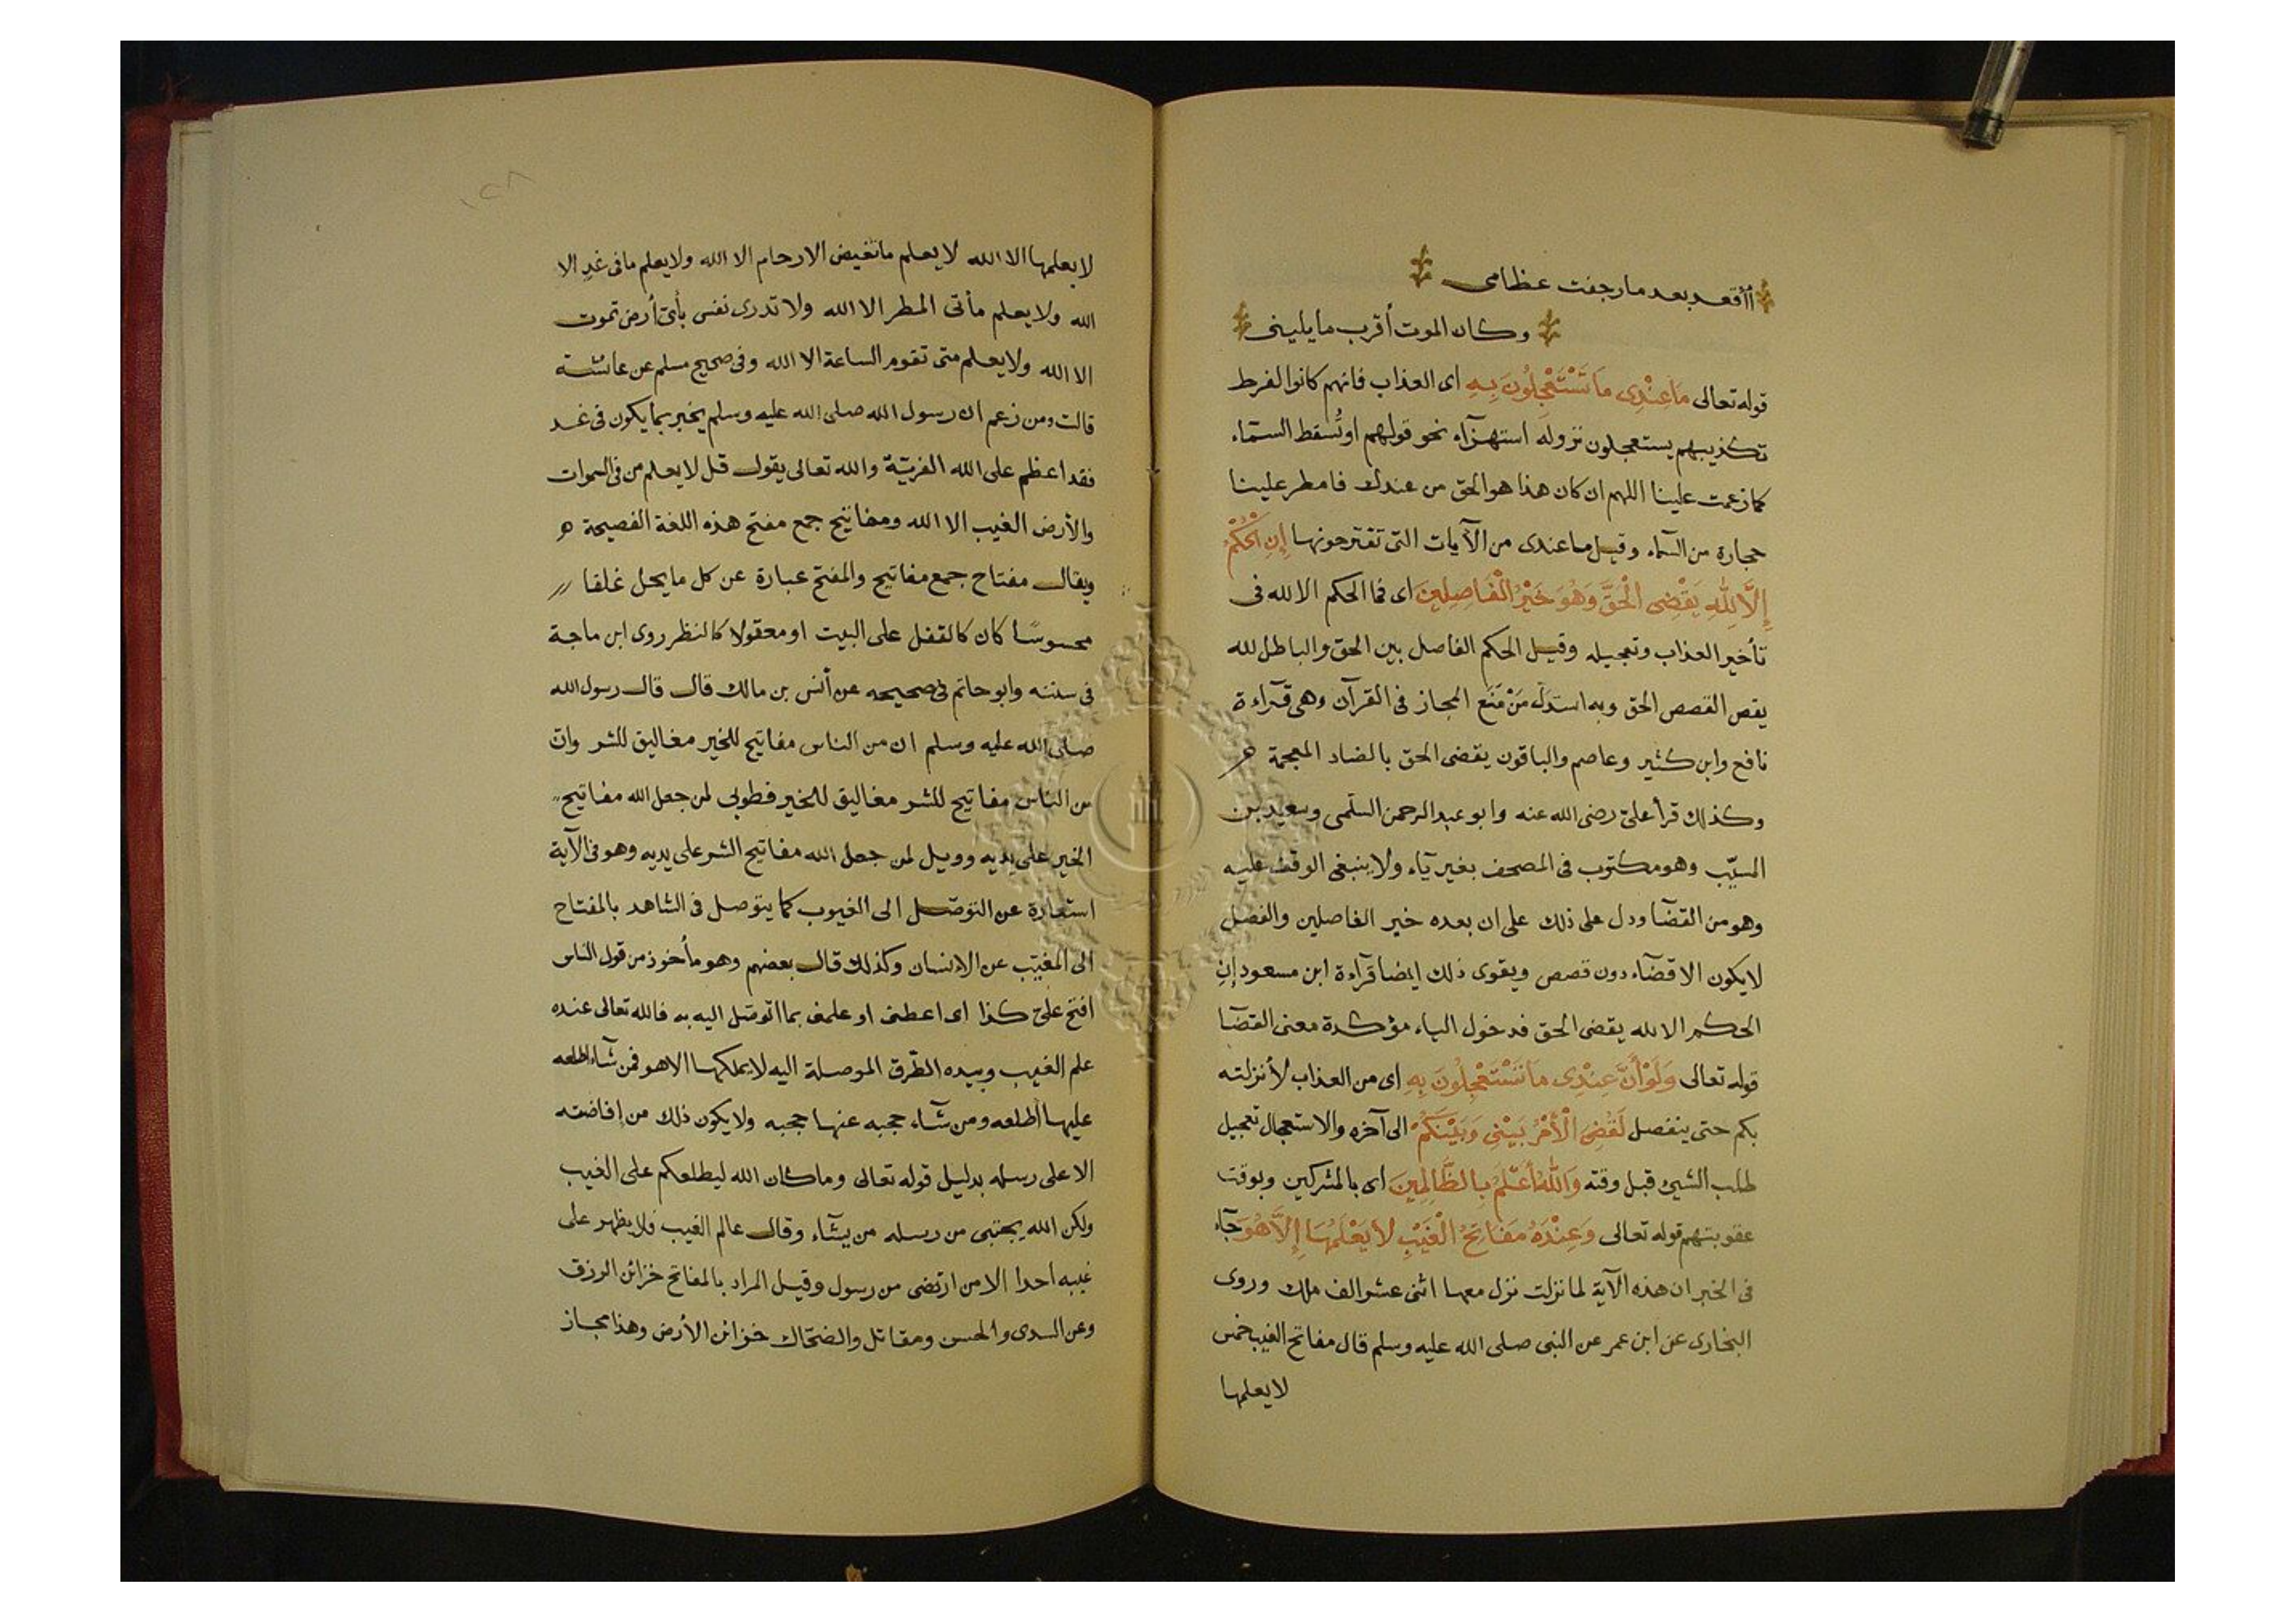 أأقعد بعد ما رجفت عظامى
وكان الموت أقرب ما يلينى
قوله تعالى مَا عِنْدِى مَا تَسْتَعْجِلُونَ بِهِ اى العذاب فانهم كانوا لفرط
تكذيبهم يستعجلون نزوله استهزآء نحو قولهم او تُسقط السمآء
كما زعمت علينا اللهم ان كان هذا هو الحق من عندك فامطر علينا
حجارة من السمآء وقيل ما عندى من الآيات التى تقترحونها إِنِ الْحُكْمُ
إِلَّا لِلّٰهِ يَقْضِى الْحَقَّ وَهُوَ خَيْرُ الْفَاصِلِينَ اى فما الحكم الا لله فى
تأخير العذاب وتعجيله وقيل الحكم الفاصل بين الحق والباطل لله
يقص القصص الحق وبه استدل مَنْ مَنَع المجاز فى القرآن وهى قرآءة
نافع وابن كثير وعاصم والباقون يقضى الحق بالضاد المعجمة
وكذلك قرأ علىّ رضى الله عنه وابو عبد الرحمن السلّمى وسعيد بن
المسيّب وهو مكتوب فى المصحف بغير يآء ولا ينبغى الوقف عليه
وهو من القضآ ودل على ذلك على ان بعده خير الفاصلين والفصل
لا يكون الا قضآء دون قصص ويقوى ذلك ايضا قرآءة ابن مسعود إن
الحكم الا لله يقضى الحق فدخول الباء مؤكدة معنى القضآ
قوله تعالى وَلَوْ أَنَّ عِنْدِى مَا تَسْتَعْجِلُونَ بِهِ اى من العذاب لأنزلته
بكم حتى ينفصل لَقُضِىَ الْأَمْرُ بَيْنِى وَبَيْنَكُمْ الى آخره والاستعجال تعجيل
طلب الشيئ قبل وقته وَاللّٰهُ أَعْلَمُ بِالظَّالِمِينَ اى بالمشركين وبوقت
عقوبتهم قوله تعالى وَعِنْدَهُ مَفَاتِحُ الْغَيْبِ لَا يَعْلَمُهَا إِلَّا هُوَ جآء
فى الخبر ان هذه الآية لما نزلت نزل معها اثنى عشر الف ملك وروى
البخارى عن ابن عمر عن النبى صلى الله عليه وسلم قال مفاتح الغيب خمس
لا يعلمها
١٢٨
لا يعلمها الا الله لا يعلم ما تغيض الارحام الا الله ولا يعلم ما فى غدٍ الا
الله ولا يعلم مأتى المطر الا الله ولا تدرى نفس بأىّ أرض تموت
الا الله ولا يعلم متى تقوم الساعة الا الله وفى صحيح مسلم عن عائشة
قالت ومن زعم ان رسول الله صلى الله عليه وسلم يخبر بما يكون فى غد
فقد اعظم على الله الفريّة والله تعالى يقول قل لا يعلم من فى السموات
والأرض الغيب الا الله ومفاتيح جمع مفتح هذه اللغة الفصيحة
ويقال مفتاح جمع مفاتيح والمفتح عبارة عن كل ما يحل غلقا
محسوسًا كان كالقفل على البيت او معقولا كالنظر روى ابن ماجة
فى سننه وابو حاتم فى صحيحه عن أنس بن مالك قال قال رسول الله
صلى الله عليه وسلم ان من الناس مفاتيح للخير مغاليق للشر وان
من الناس مفاتيح للشر مغاليق للخير فطوبى لمن جعل الله مفاتيح
الخير على يديه وويل لمن جعل الله مفاتيح الشر على يديه وهو فى الآية
استعارة عن التوصّل الى الغيوب كما يتوصل فى الشاهد بالمفتاح
الى المغيّب عن الانسان وكذلك قال بعضهم وهو مأخوذ من قول الناس
افتح علىّ كذا اى اعطنى او علمنى بما اتوصّل اليه به فالله تعالى عنده
علم الغيب وبيده الطّرق الموصلة اليه لا يملكها الا هو فمن شآء اطلعه
عليها أطلعه ومن شآء حجبه عنها حجبه ولا يكون ذلك من إفاضته
الا على رسله بدليل قوله تعالى وما كان الله ليطلعكم على الغيب
ولكن الله يجتبى من رسله من يشآء وقال عالم الغيب فلا يظهر على
غيبه احدا الا من ارتضى من رسول وقيل المراد بالمفاتح خزائن الرزق
وعن السدى والحسن ومقاتل والضحّاك خزائن الأرض وهذا مجاز